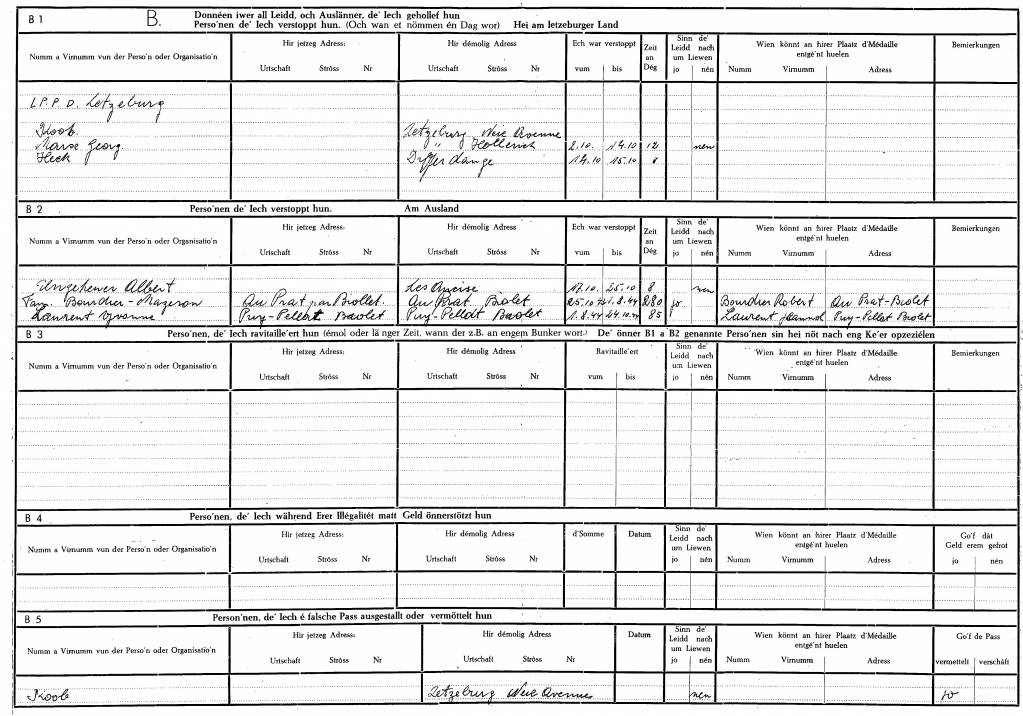 B 1
B.
Donnéen iwer all Leidd, och Auslänner, de' Iech gehollef hun
Perso'nen de' Iech verstoppt hun. (Och wan et nömmen én Dag wor) Hei am letzeburger Land
Numm a Virnumm vun der Perso'n oder Organisatio'n
Hir jetzeg Adress:
Urtschaft Ströss Nr
Hir démolig Adress
Urtschaft Ströss Nr
Ech war verstoppt
vum bis
Zeit an Dég
Sinn de' Leidd nach um Liewen
jo nén
Wien könnt an hirer Plaatz d'Médaille entgé'nt huelen
Numm Virnumm Adress
Bemierkungen
L.P.P.D. Letzeburg
Koob. Letzeburg Neie Avenue
Georg. " Hollerich 2.10. 14.10 12 nen
Heck Differdange 14.10 15.10 8
B 2 Perso'nen de' Iech verstoppt hun. Am Ausland
Numm a Virnumm vun der Perso'n oder Organisatio'n
Hir jetzeg Adress:
Urtschaft Ströss Nr
Hir démolig Adress
Urtschaft Ströss Nr
Ech war verstoppt
vum bis
Zeit an Dég
Sinn de' Leidd nach um Liewen
jo nén
Wien könnt an hirer Plaatz d'Médaille entgé'nt huelen
Numm Virnumm Adress
Bemierkungen
Ungeheuer Albert Les Ancise 17.10. 25.10 8 nen
Fam. Bourdier-Mazeron Au Prat par Biollet. Au Prat Biolet 25.10 1.8.44 280 jo Bourdier Robert Au Prat-Biolet
Laurent Yvonne Puy-Pellet Biolet 1.8.44 24.10.44 85 Laurent Puy-Pellet Biolet
B 3 Perso'nen, de' Iech ravitaille'ert hun (émol oder lä nger Zeit, wann der z.B. an engem Bunker wort.) De' önner B1 a B2 genannte Perso'nen sin hei nöt nach eng Ke'er opzeziélen
Numm a Virnumm vun der Perso'n oder Organisatio'n
Hir jetzeg Adress:
Urtschaft Ströss Nr
Hir démolig Adress
Urtschaft Ströss Nr
Ravitaille'ert
vum bis
Sinn de' Leidd nach um Liewen
jo nén
Wien könnt an hirer Plaatz d'Médaille entgé'nt huelen
Numm Virnumm Adress
Bemierkungen
B 4 Perso'nen, de' Iech während Erer Illégalitét matt Geld önnerstötzt hun
Numm a Virnumm vun der Perso'n oder Organisatio'n
Hir jetzeg Adress:
Urtschaft Ströss Nr
Hir démolig Adress
Urtschaft Ströss Nr
d'Somme
Datum
Sinn de' Leidd nach um Liewen
jo nén
Wien könnt an hirer Plaatz d'Médaille entgé'nt huelen
Numm Virnumm Adress
Go'f dât Geld erem gefrot
jo nén
B 5 Person'nen, de' Iech é falsche Pass ausgestallt oder vermöttelt hun
Numm a Virnumm vun der Perso'n oder Organisatio'n
Hir jetzeg Adress:
Urtschaft Ströss Nr
Hir démolig Adress
Urtschaft Ströss Nr
Datum
Sinn de' Leidd nach um Liewen
jo nén
Wien könnt an hirer Plaatz d'Médaille entgé'nt huelen
Numm Virnumm Adress
Go'f de Pass
vermettelt verschâft
Koob Letzeburg Neie Avenue nen jo